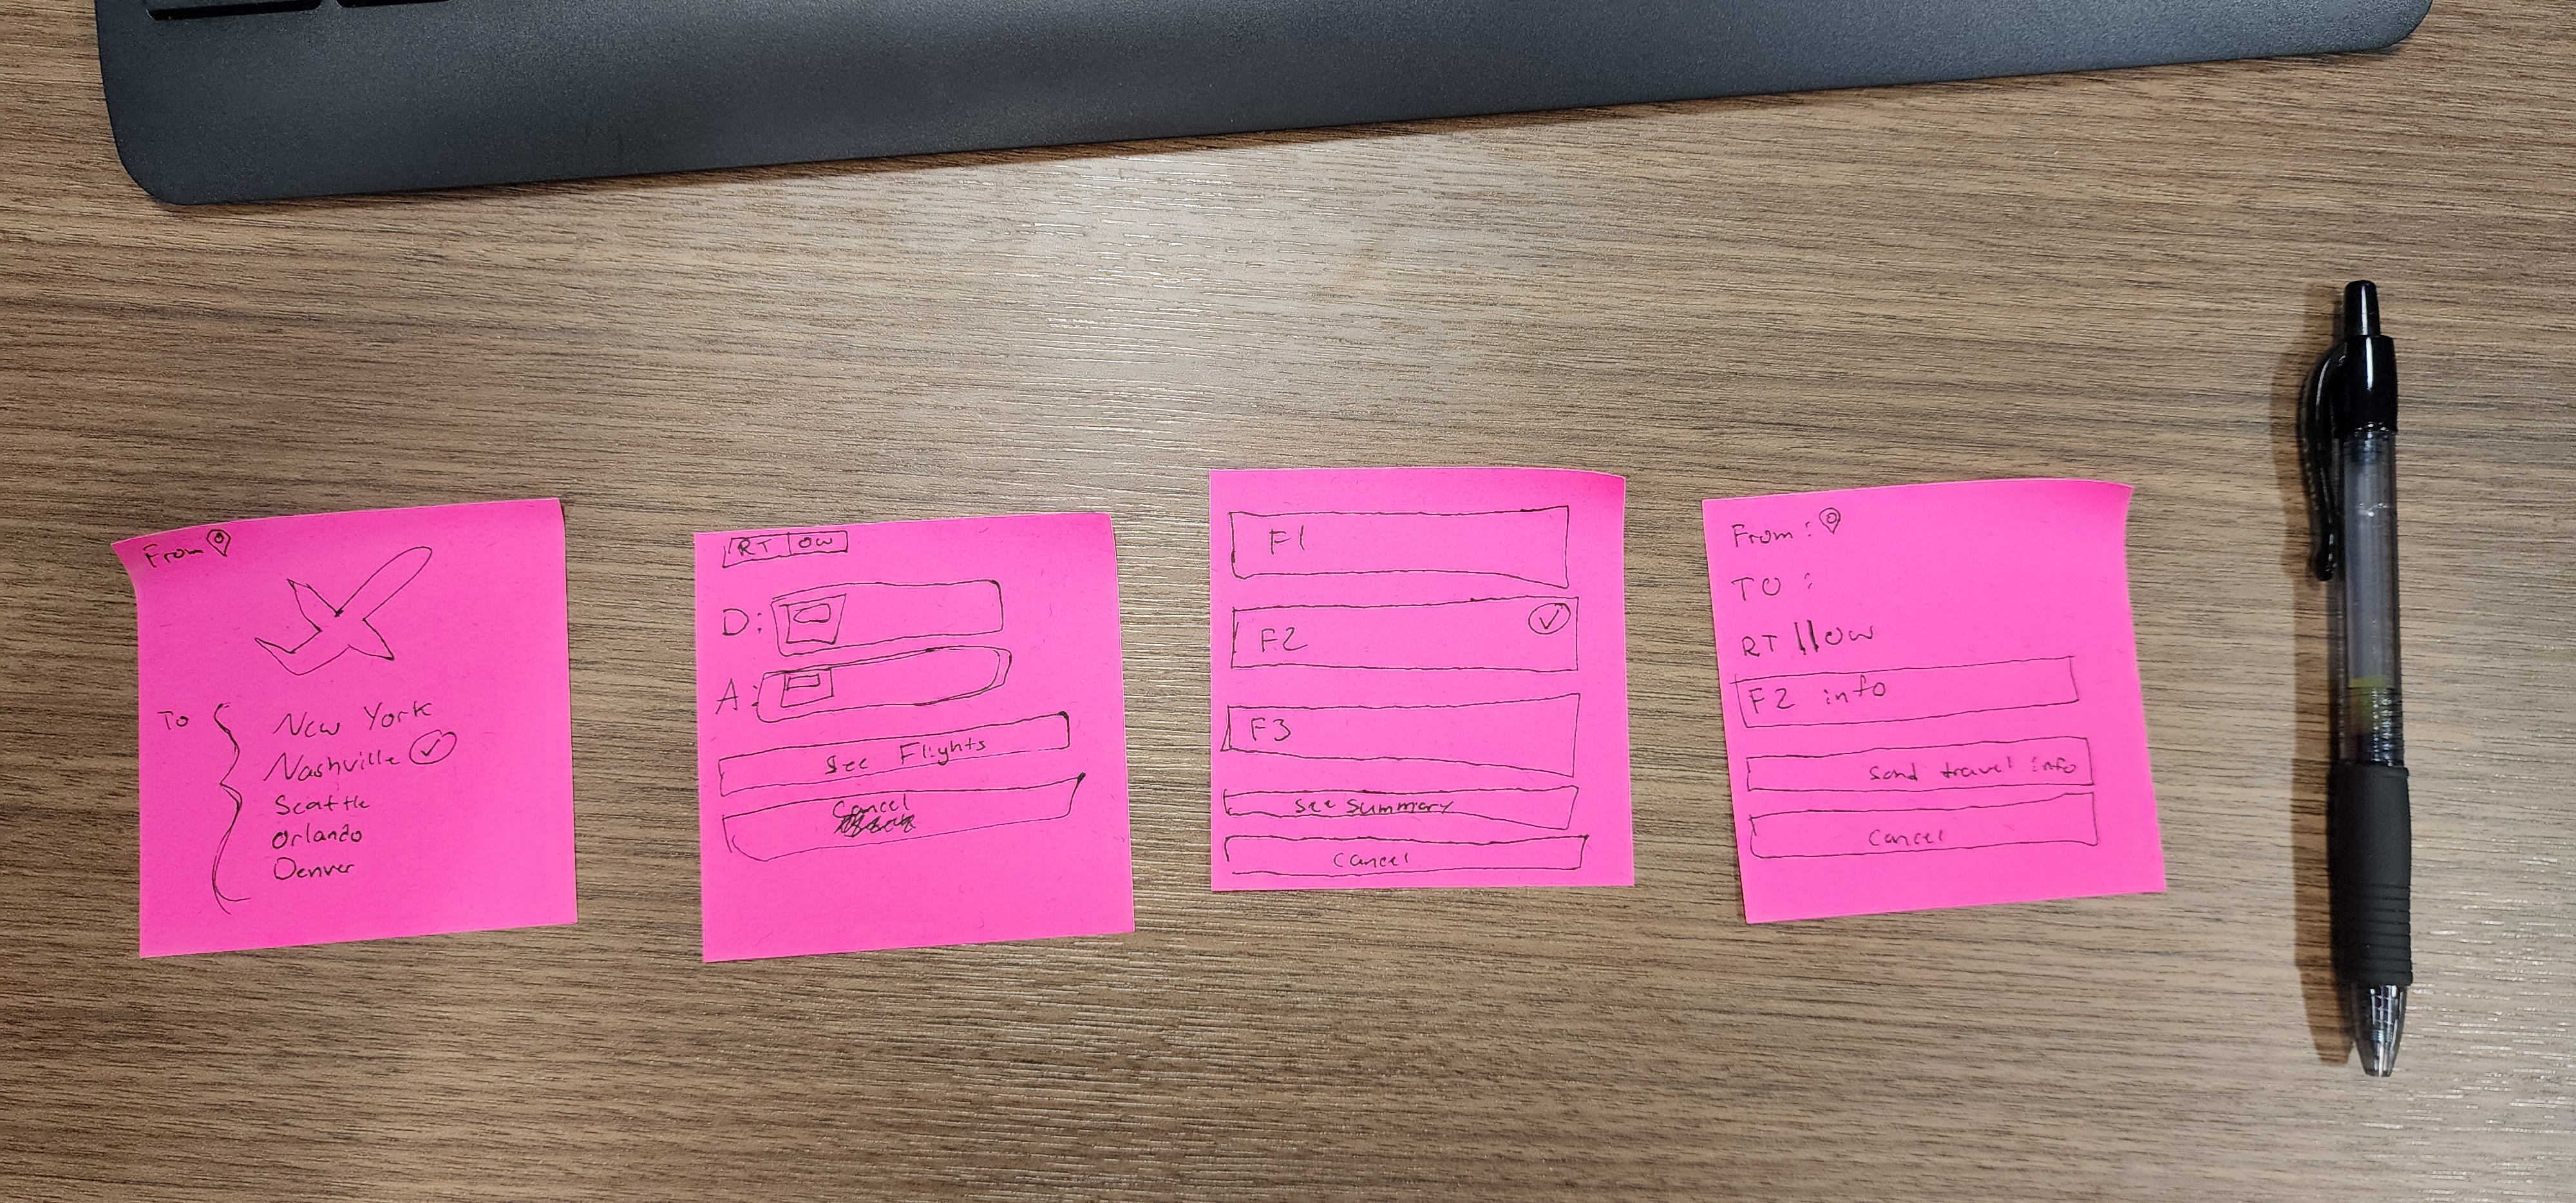 From
To
New York
Nashville
Seattle
Orlando
Denver
RT OW
D:
A:
See Flights
Cancel
F1
F2
F3
See Summary
Cancel
From:
TO:
RT || OW
F2 info
Send travel info
Cancel